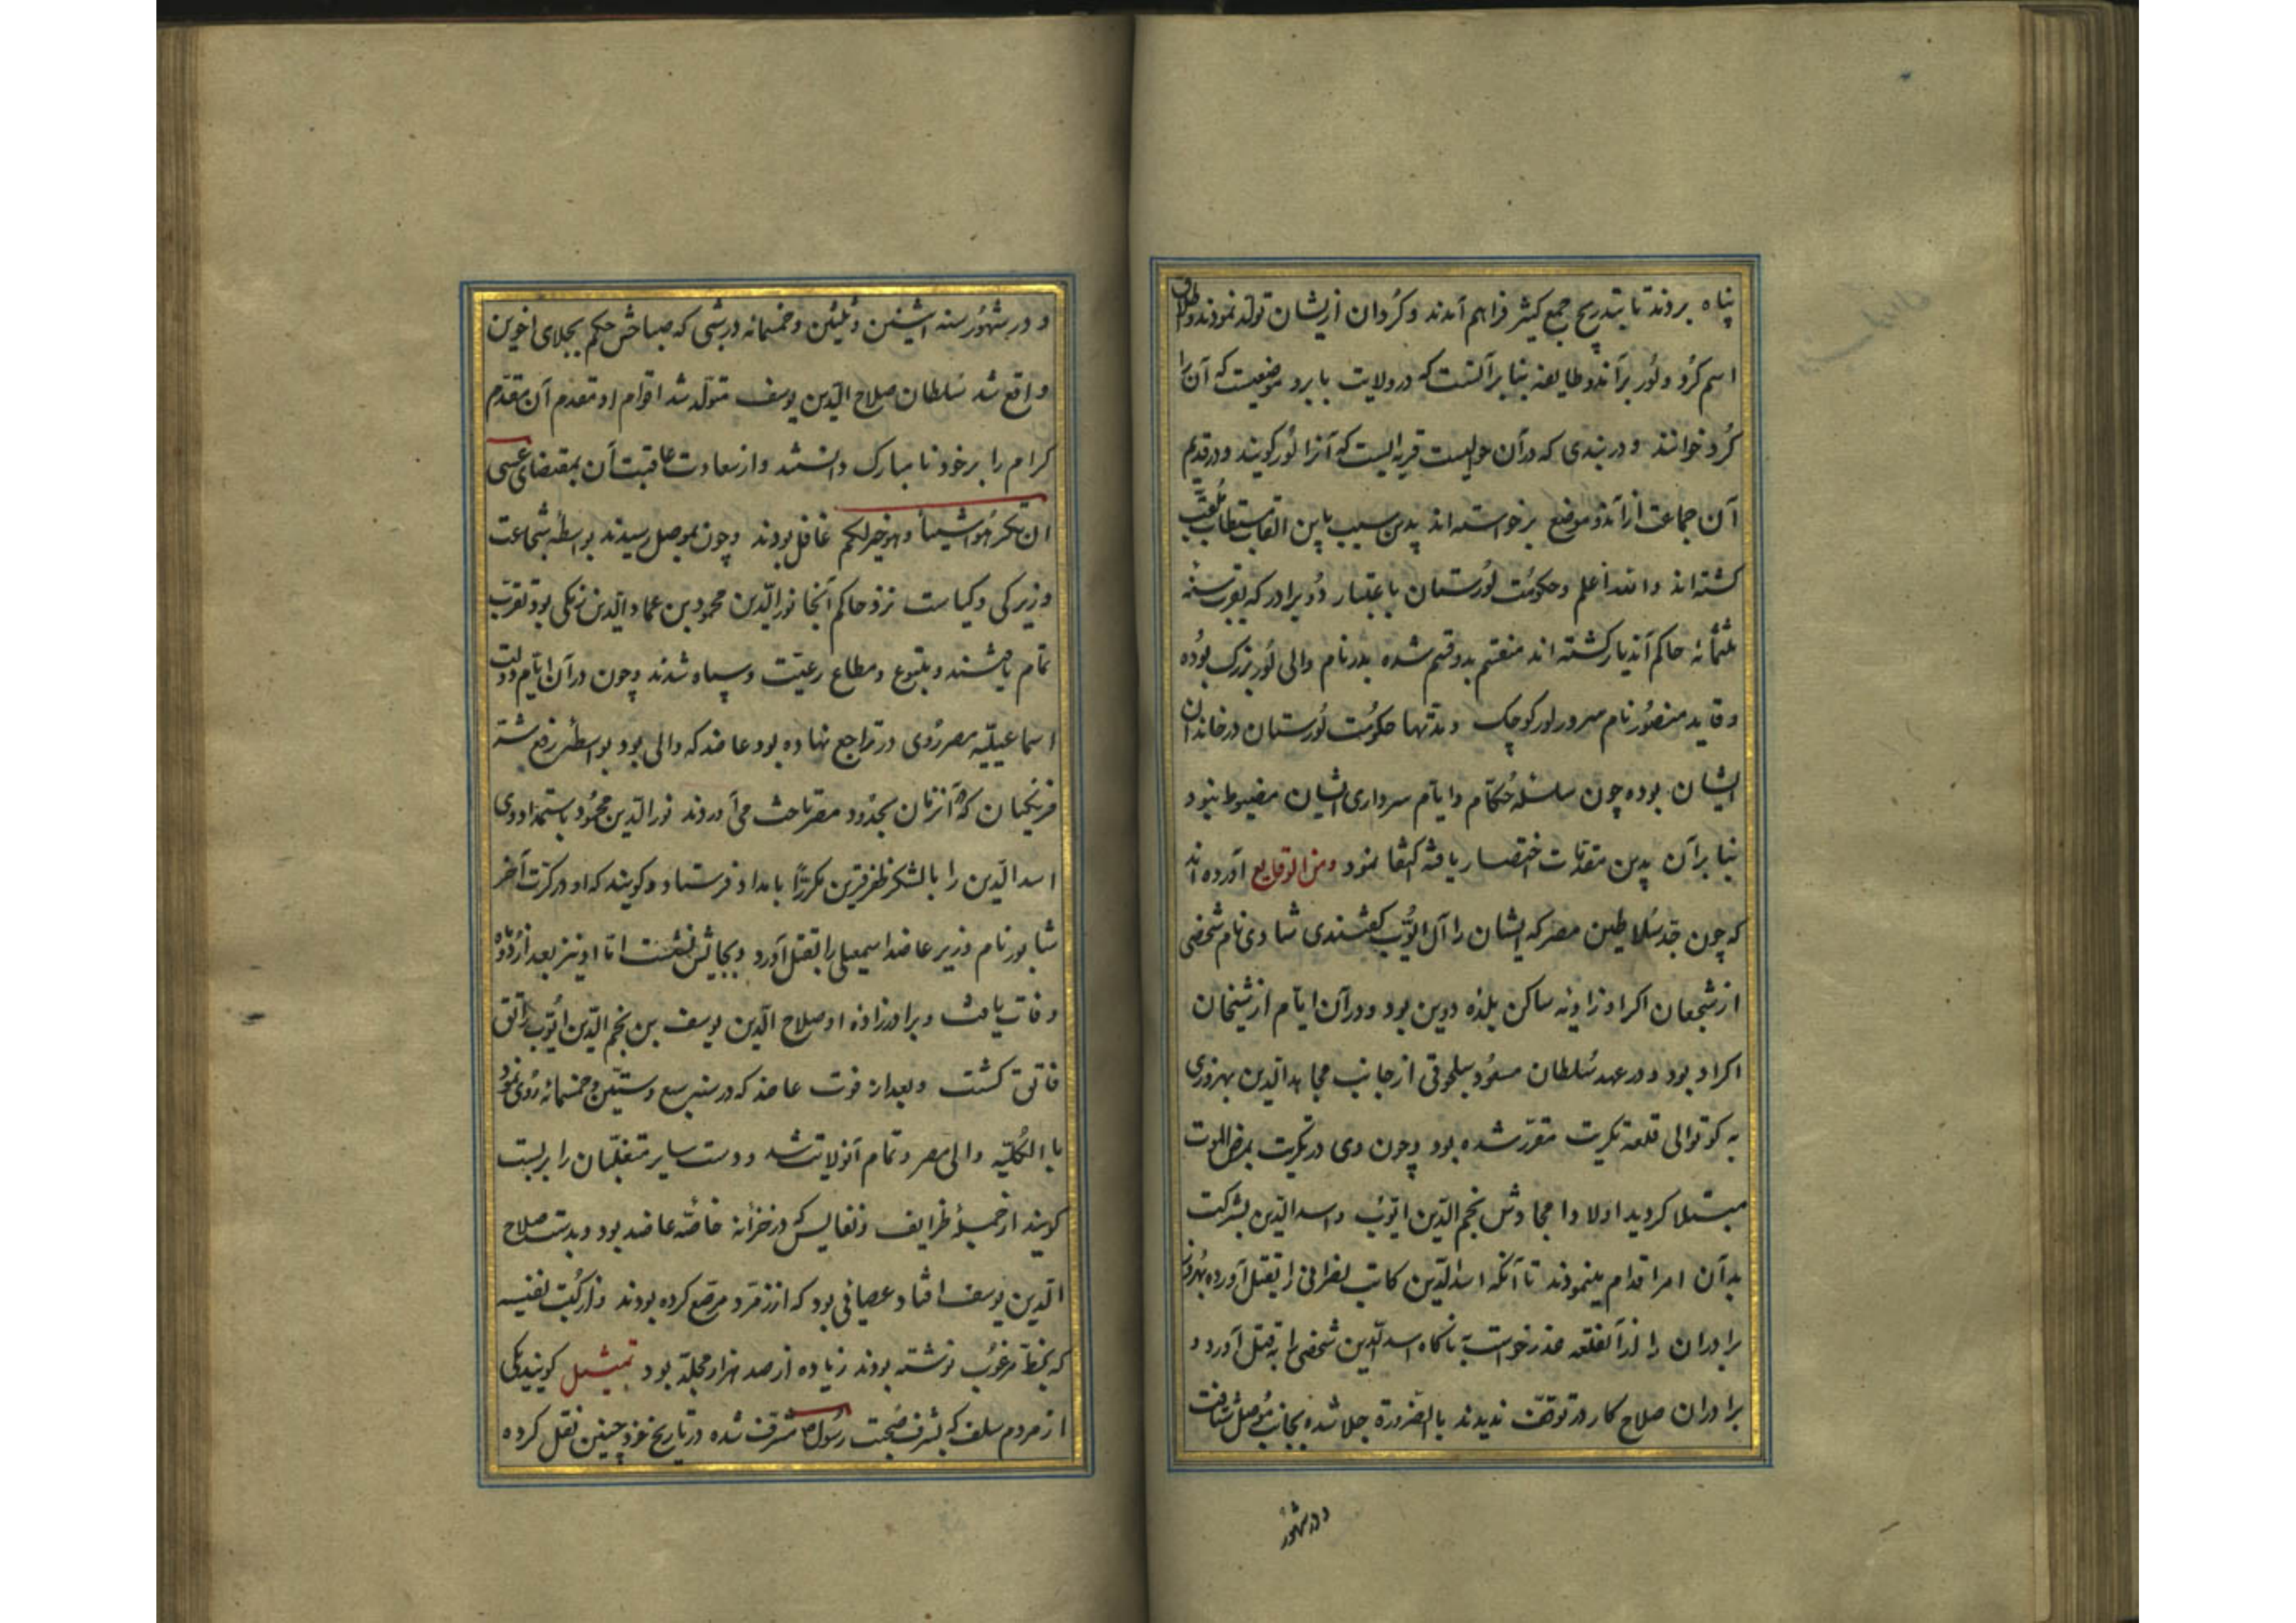 پناه بردند تا بتدریج جمع کثیر فراهم آمدند و کُردان ازیشان تولّد نمودند و اطلاق
اسم کُرد و لُور بر آندو طایفه بنا بر آنست که در ولایت بابرد موضعیست که آن را
کُرد خوانند و در بندی که در آن حوالیست قریه‌ایست که آنرا لُور کویند و در قدیم
آن جماعت از آندو موضع برخواسته‌اند بدین سبب باین القاب مستطاب مُلقب
کشته‌اند والله اعلم و حکومت لُورستان باعتبار دُو برادر که بقرب سنه
ثلثمائه حاکم آندیار کشته‌اند منقسم بدو قسم شده بدر نام والی لُور بزرک بُوده
و قاید منصُور نام سرور لور کوچک و مدّتها حکومُت لُورستان در خاندان
ایشان بوده چون سلسله حُکّام و ایام سرداری ایشان مضبوط نبود
بنا بر آن بدین مقدّمات اختصار یافته اکتفا نمود ومن الوقایع آورده اند
که چون جدّ سُلاطین مصر که ایشان را آل ایُّوب کفتندی شادی نام شخصی
از شجعان اکراد زاویه ساکن بلده دوین بود و در آن ایّام از شیخان
اکراد بود و در عهد سُلطان مسعُود سلجوقی از جانب مجاهد الّدین بهروزی
به کوتوالی قلعه تکریت مقرّر شده بود و چون وی در تکریت بمرض الموت
مبتلا کردید اولاد امجادش نجم الّدین ایّوب و اسد الّدین بشرکت
بدآن امر اقدام مینمودند تا آنکه اسد الّدین کاتب نصرانی را بقتل آورده بهروز
برادران را از آنقلعه عذر خواست بناکاه اسد الّدین شخصی را بقتل آورد و
برادران صلاح کار در توقّف ندیدند بالضرورة جلا شده بجانب مُوصل شتافت
و در شهُور
و در شهُور سنه اثنین و ثلثین و خمسمائه در شبی که صباحش حکم بجلای اخوین
واقع شد سُلطان صلاح الّدین یوسف متولّد شد اقوام او مقدم آن مقدّم
کرام را بر خود نا مبارک دانستند و از سعادت عاقبت آن بمقتضای عسی
ان تکرهُوا شیئاً وهو خیر لکم غافل بودند و چون بموصل رسیدند بواسطه شجاعت
و زیرکی و کیاست نزد حاکم آنجا نور الّدین محمود بن عماد الّدین زنکی بود تقرّب
تمام یافتند و متبوع و مطاع رعیّت و سپاه شدند و چون در آن ایّام دولت
اسماعیلیّه مصر رُوی در تراجع نهاده بود عاضد که والی بود بواسطه رفع شر
فرنکیان که در آنزمان بحُدود مصر تاخت می آوردند نور الّدین محمُود باستمداد وی
اسد الّدین را با لشکر ظفر قرین مکرراً بامداد فرستاد و کویند که او در کرّت آخر
شابور نام وزیر عاضد اسمعیلی را بقتل آورد و بجایش نشست امّا او نیز بعد از دو ماه
وفات یافت و برادرزاده او صلاح الّدین یوسف بن نجم الّدین ایُّوب راتق
فاتق کشت و بعد از فوت عاضد که در سنه سبع و ستیّن و خمسمائه رُوی نمُود
با الکُلیّه والی مصر و تمام آنولایت شد و دست سایر متغلّبان را بربست
کویند از جملهٔ ظرایف و نفایس که در خزانه خاصّه عاضد بود و بدست صلاح
الّدین یوسف افتاد عصائی بود که از زمرّد مرصّع کرده بودند و از کُتب نفیسه
که بخطّ مرغوُب نوشته بودند زیاده از صد هزار مجلّد بود تمثیل کویند یکی
از مردم سلف که بشرف صُحبت رسُول ص مشرّف شده در تاریخ خود چنین نقل کرده